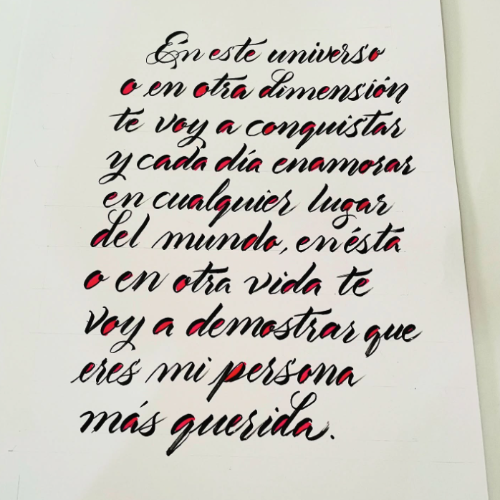 En este universo
o en otra dimensión
te voy a conquistar
y cada día enamorar
en cualquier lugar
del mundo, en ésta
o en otra vida te
voy a demostrar que
eres mi persona
más querida.